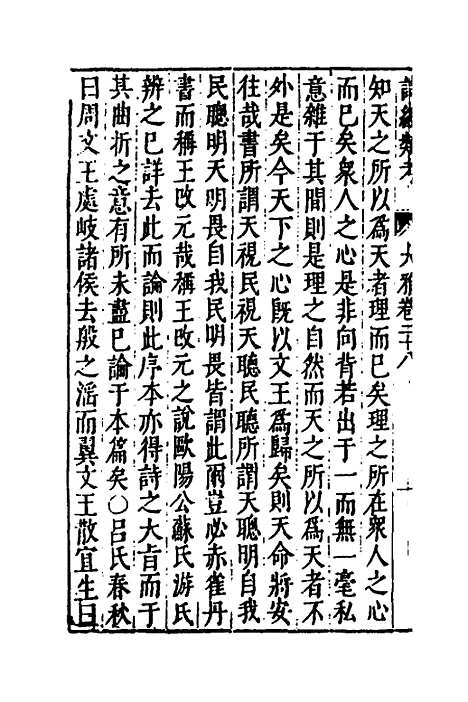 大雅卷二十八
知天之所以為天者理而已矣理之所在衆人之心
而已矣衆人之心是非向背若出于一而無一毫私
意雜于其間則是理之自然而天之所以為天者不
外是矣今天下之心既以文王為歸矣則天命將安
往哉書所謂天視民視天聽民聽所謂天聰明自我
民聰明天明畏自我民明畏皆謂此爾豈必赤雀丹
書而稱王改元哉稱王改元之說歐陽公蘇氏游氏
辨之已詳去此而論則此序本亦得詩之大旨而于
其曲折之意有所未盡已論于本篇矣○呂氏春秋
曰周文王處岐諸侯去殷之滛而翼文王散宜生曰